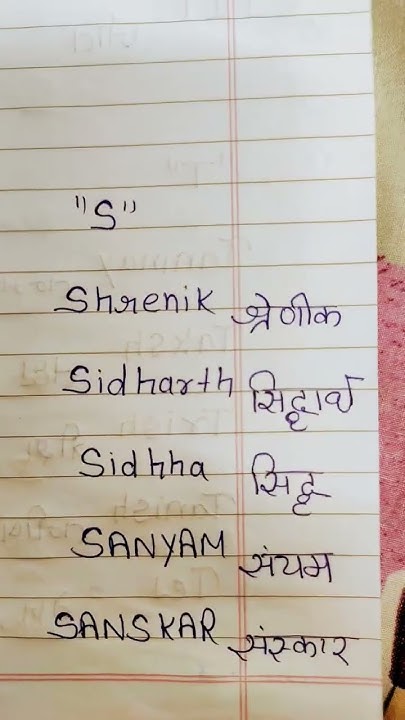 "S"
Shrenik श्रेणीक
Sidharth सिद्धार्थ
Sidhha सिद्ध
SANYAM संयम
SANSKAR संस्कार